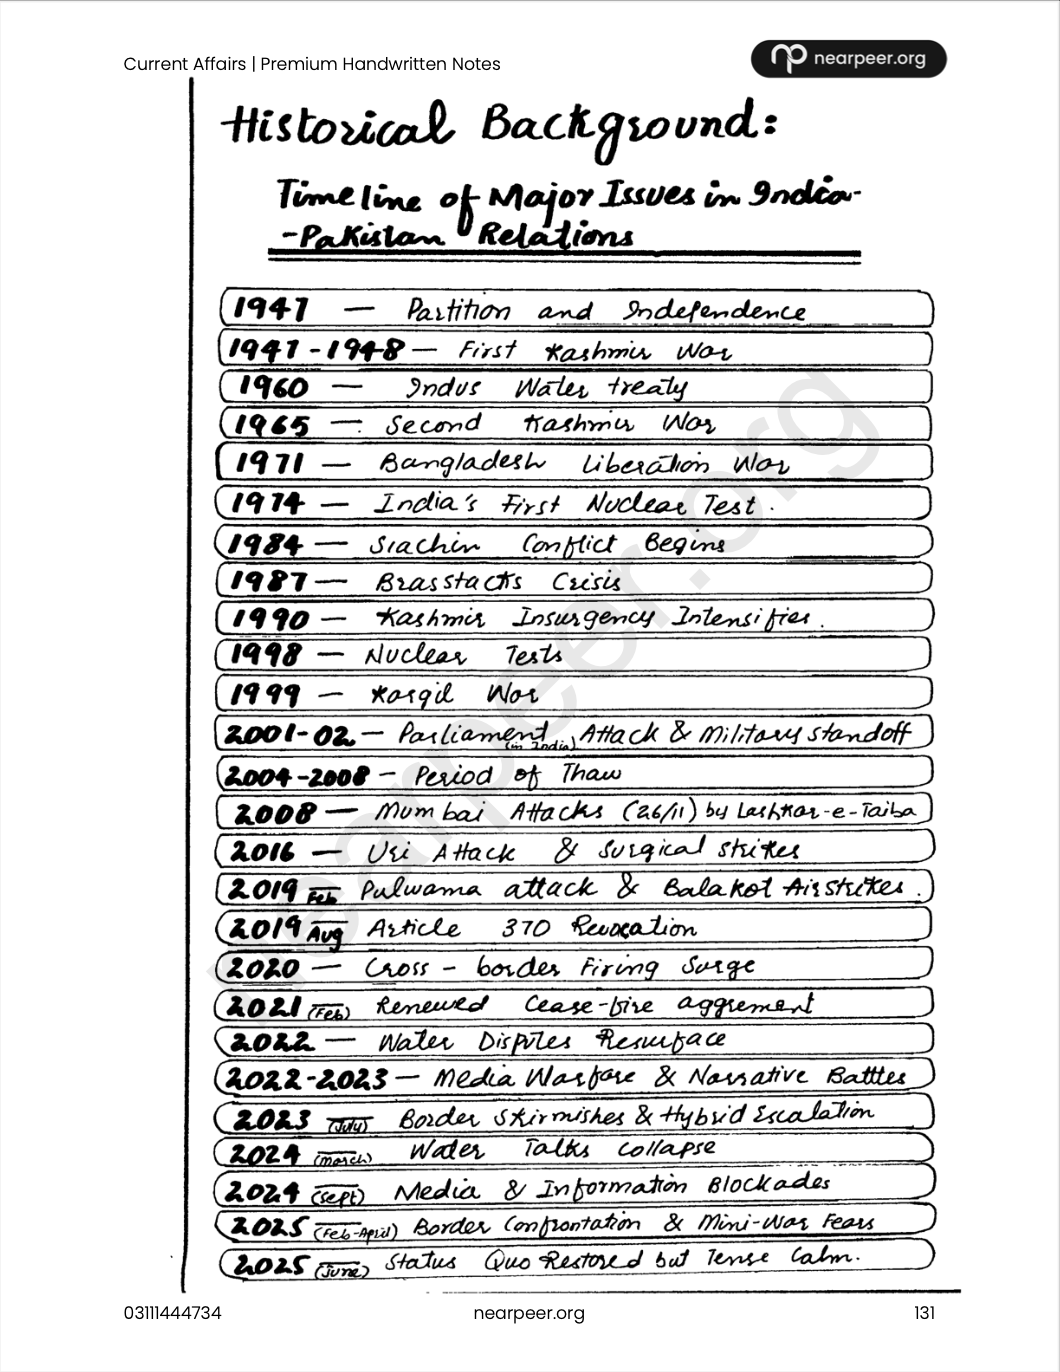 Current Affairs | Premium Handwritten Notes
nearpeer.org
Historical Background:
Timeline of Major Issues in India-
-Pakistan Relations
1947 — Partition and Independence
1947-1948 — First Kashmir War
1960 — Indus Water treaty
1965 — Second Kashmir War
1971 — Bangladesh Liberation War
1974 — India's First Nuclear Test.
1984 — Siachin Conflict Begins
1987 — Brasstacks Crisis
1990 — Kashmir Insurgency Intensifies.
1998 — Nuclear Tests
1999 — Kargil War
2001-02 — Parliament (in India) Attack & Military standoff
2004-2008 — Period of Thaw
2008 — Mumbai Attacks (26/11) by Lashkar-e-Taiba
2016 — Uri Attack & Surgical strikes
2019 Feb Pulwama attack & Balakot Airstrikes.
2019 Aug Article 370 Revocation
2020 — Cross-border Firing Surge
2021 (Feb) Renewed Cease-fire aggrement
2022 — Water Disputes Resurface
2022-2023 — Media Warfare & Narrative Battles
2023 (July) Border Skirmishes & Hybrid Escalation
2024 (March) Water Talks collapse
2024 (Sept) Media & Information Blockades
2025 (Feb-April) Border Confrontation & Mini-War Fears
2025 (June) Status Quo Restored but Tense Calm.
nearpeer.org
03111444734
nearpeer.org
131